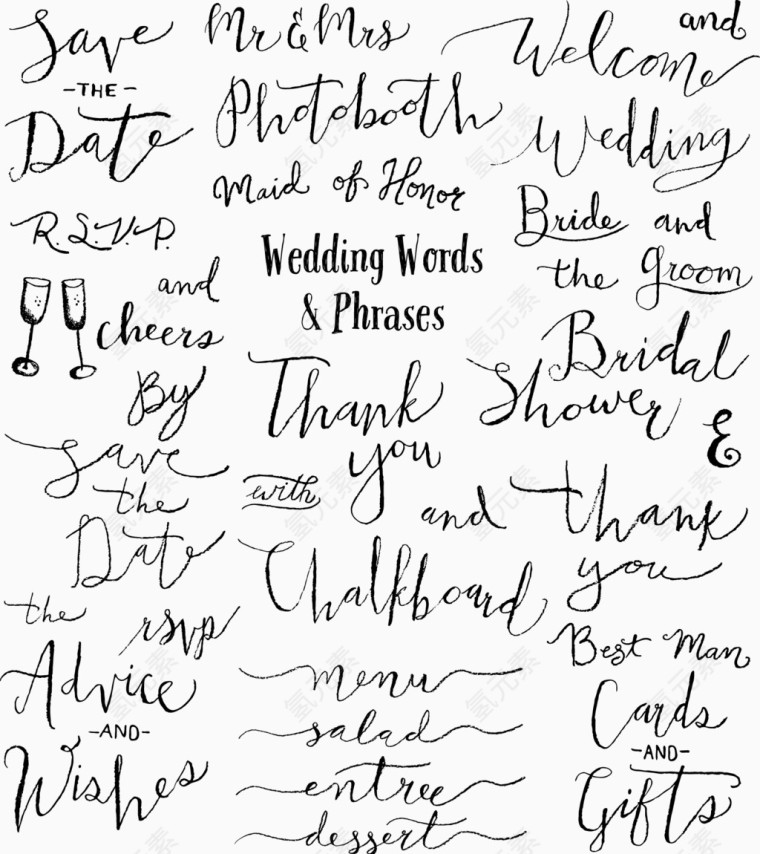 Save
-THE-
Date
R.S.V.P.
and
cheers
By
save
the
Date
the
rsvp
Advice
-AND-
Wishes
Mr & Mrs
Photobooth
Maid of Honor
Wedding Words
& Phrases
Thank
you
with
and
Chalkboard
menu
salad
entree
dessert
and
Welcome
Wedding
Bride and
the groom
Bridal
Shower
&
thank
you
Best Man
Cards
-AND-
Gifts
氢元素